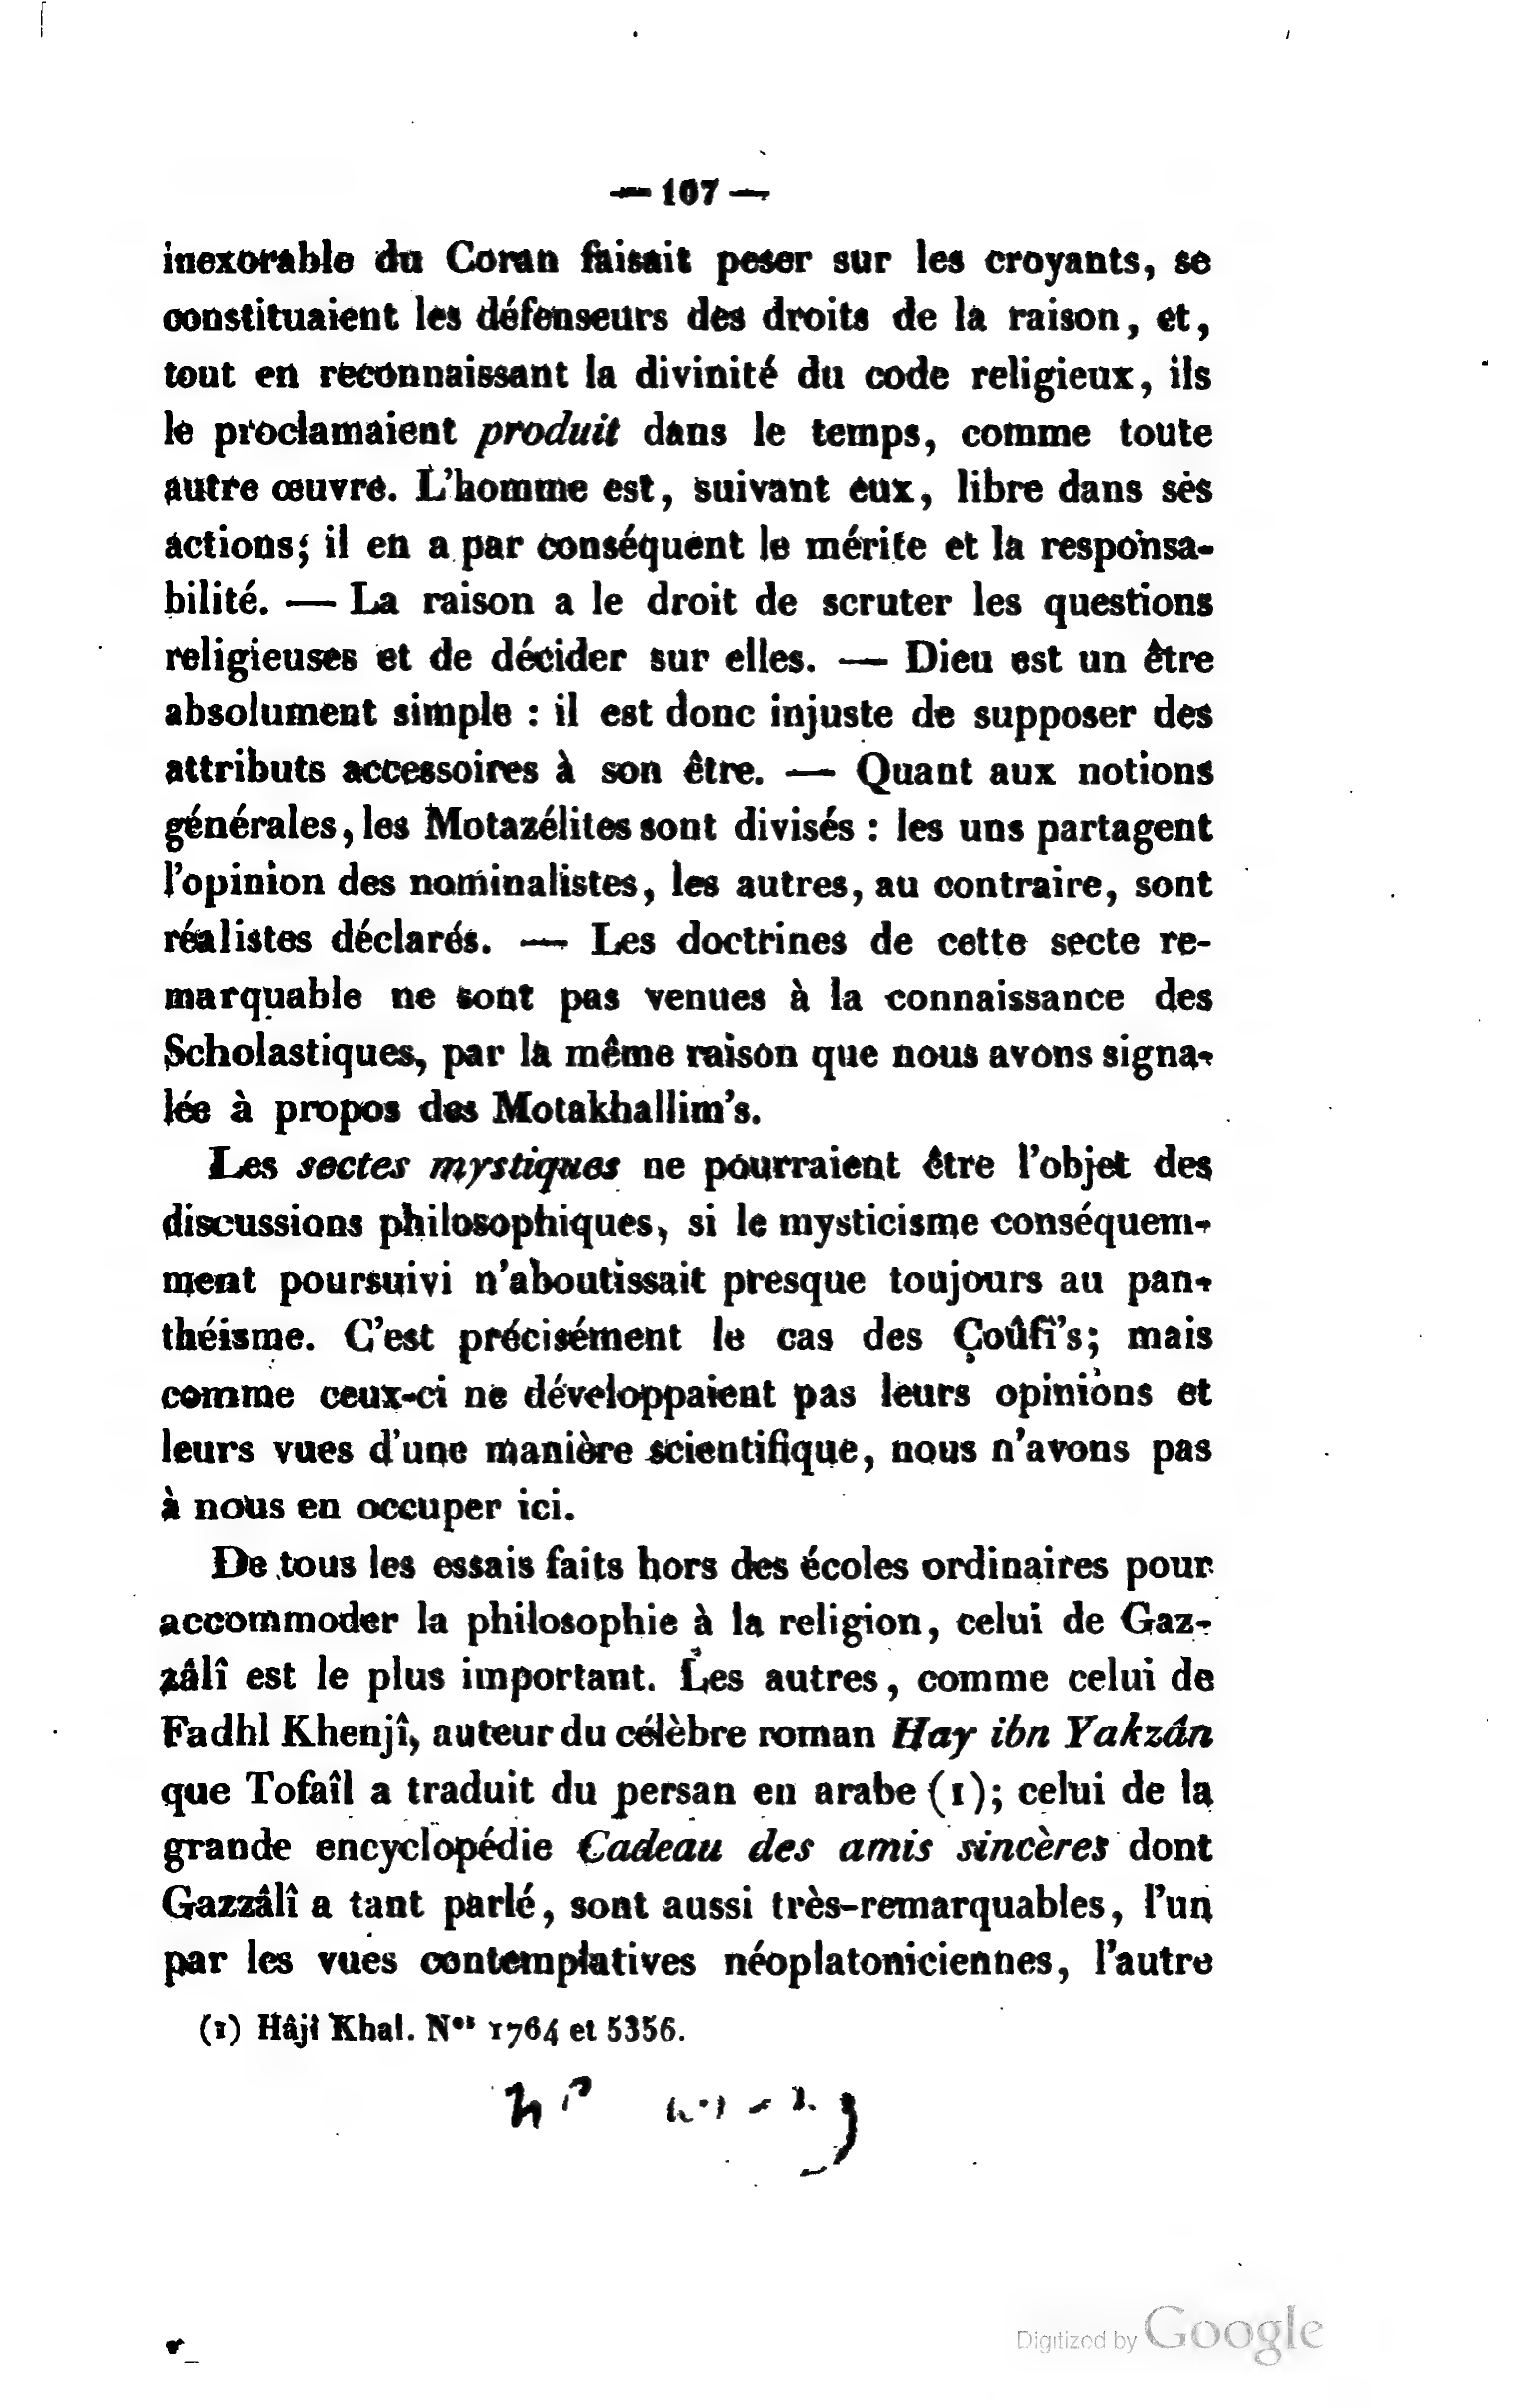 — 107 —
inexorable du Coran faisait peser sur les croyants, se
constituaient les défenseurs des droits de la raison, et,
tout en reconnaissant la divinité du code religieux, ils
le proclamaient produit dans le temps, comme toute
autre œuvre. L'homme est, suivant eux, libre dans ses
actions; il en a par conséquent le mérite et la responsa-
bilité. — La raison a le droit de scruter les questions
religieuses et de décider sur elles. — Dieu est un être
absolument simple : il est donc injuste de supposer des
attributs accessoires à son être. — Quant aux notions
générales, les Motazélites sont divisés : les uns partagent
l'opinion des nominalistes, les autres, au contraire, sont
réalistes déclarés. — Les doctrines de cette secte re-
marquable ne sont pas venues à la connaissance des
Scholastiques, par la même raison que nous avons signa-
lée à propos des Motakhallim's.
Les sectes mystiques ne pourraient être l'objet des
discussions philosophiques, si le mysticisme conséquem-
ment poursuivi n'aboutissait presque toujours au pan-
théisme. C'est précisément le cas des Çoûfî's; mais
comme ceux-ci ne développaient pas leurs opinions et
leurs vues d'une manière scientifique, nous n'avons pas
à nous en occuper ici.
De tous les essais faits hors des écoles ordinaires pour
accommoder la philosophie à la religion, celui de Gaz-
zâlî est le plus important. Les autres, comme celui de
Fadhl Khenjî, auteur du célèbre roman Hay ibn Yakzân
que Tofaîl a traduit du persan en arabe (1); celui de la
grande encyclopédie Cadeau des amis sincères dont
Gazzâlî a tant parlé, sont aussi très-remarquables, l'un
par les vues contemplatives néoplatoniciennes, l'autre
(1) Hâjî Khal. Nos 1764 et 5356.
Digitized by Google